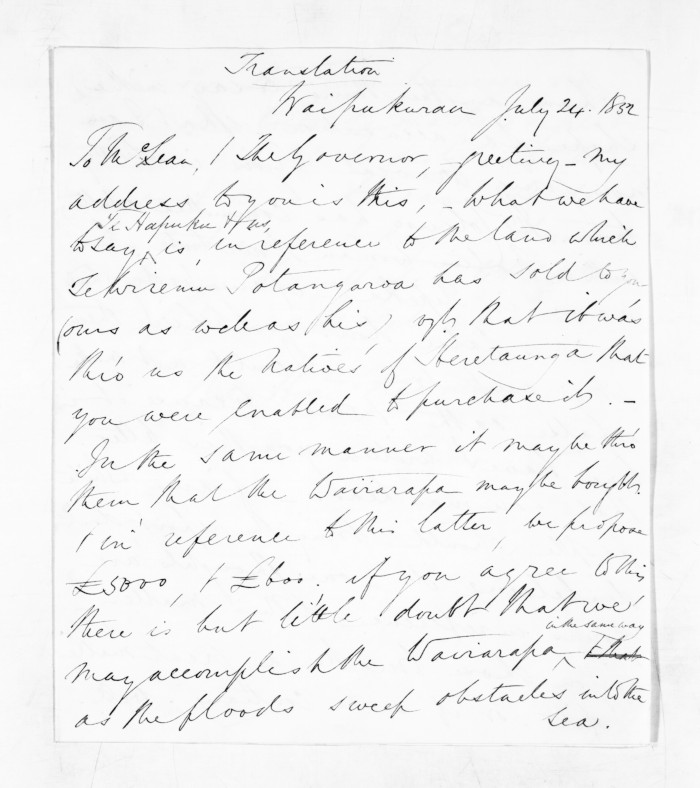 Translation
Waipukurau July 24. 1852
To McLean, & The Governor, greeting - My
address to you is this, - What we have
Te Hapuku & us,
to say, is, in reference to the land which
Te Wiremu Potangaroa has sold to you
(ours as well as his) that it was
thro us the Natives of Heretaunga that
you were enabled to purchase it. -
In the same manner it may be thro
them that the Wairarapa may be bought,
& in reference to this latter, we propose
£5000, & £600. if you agree to this
there is but little doubt that we
in the same way
may accomplish the Wairarapa & that
as the floods sweep obstacles into the
sea.